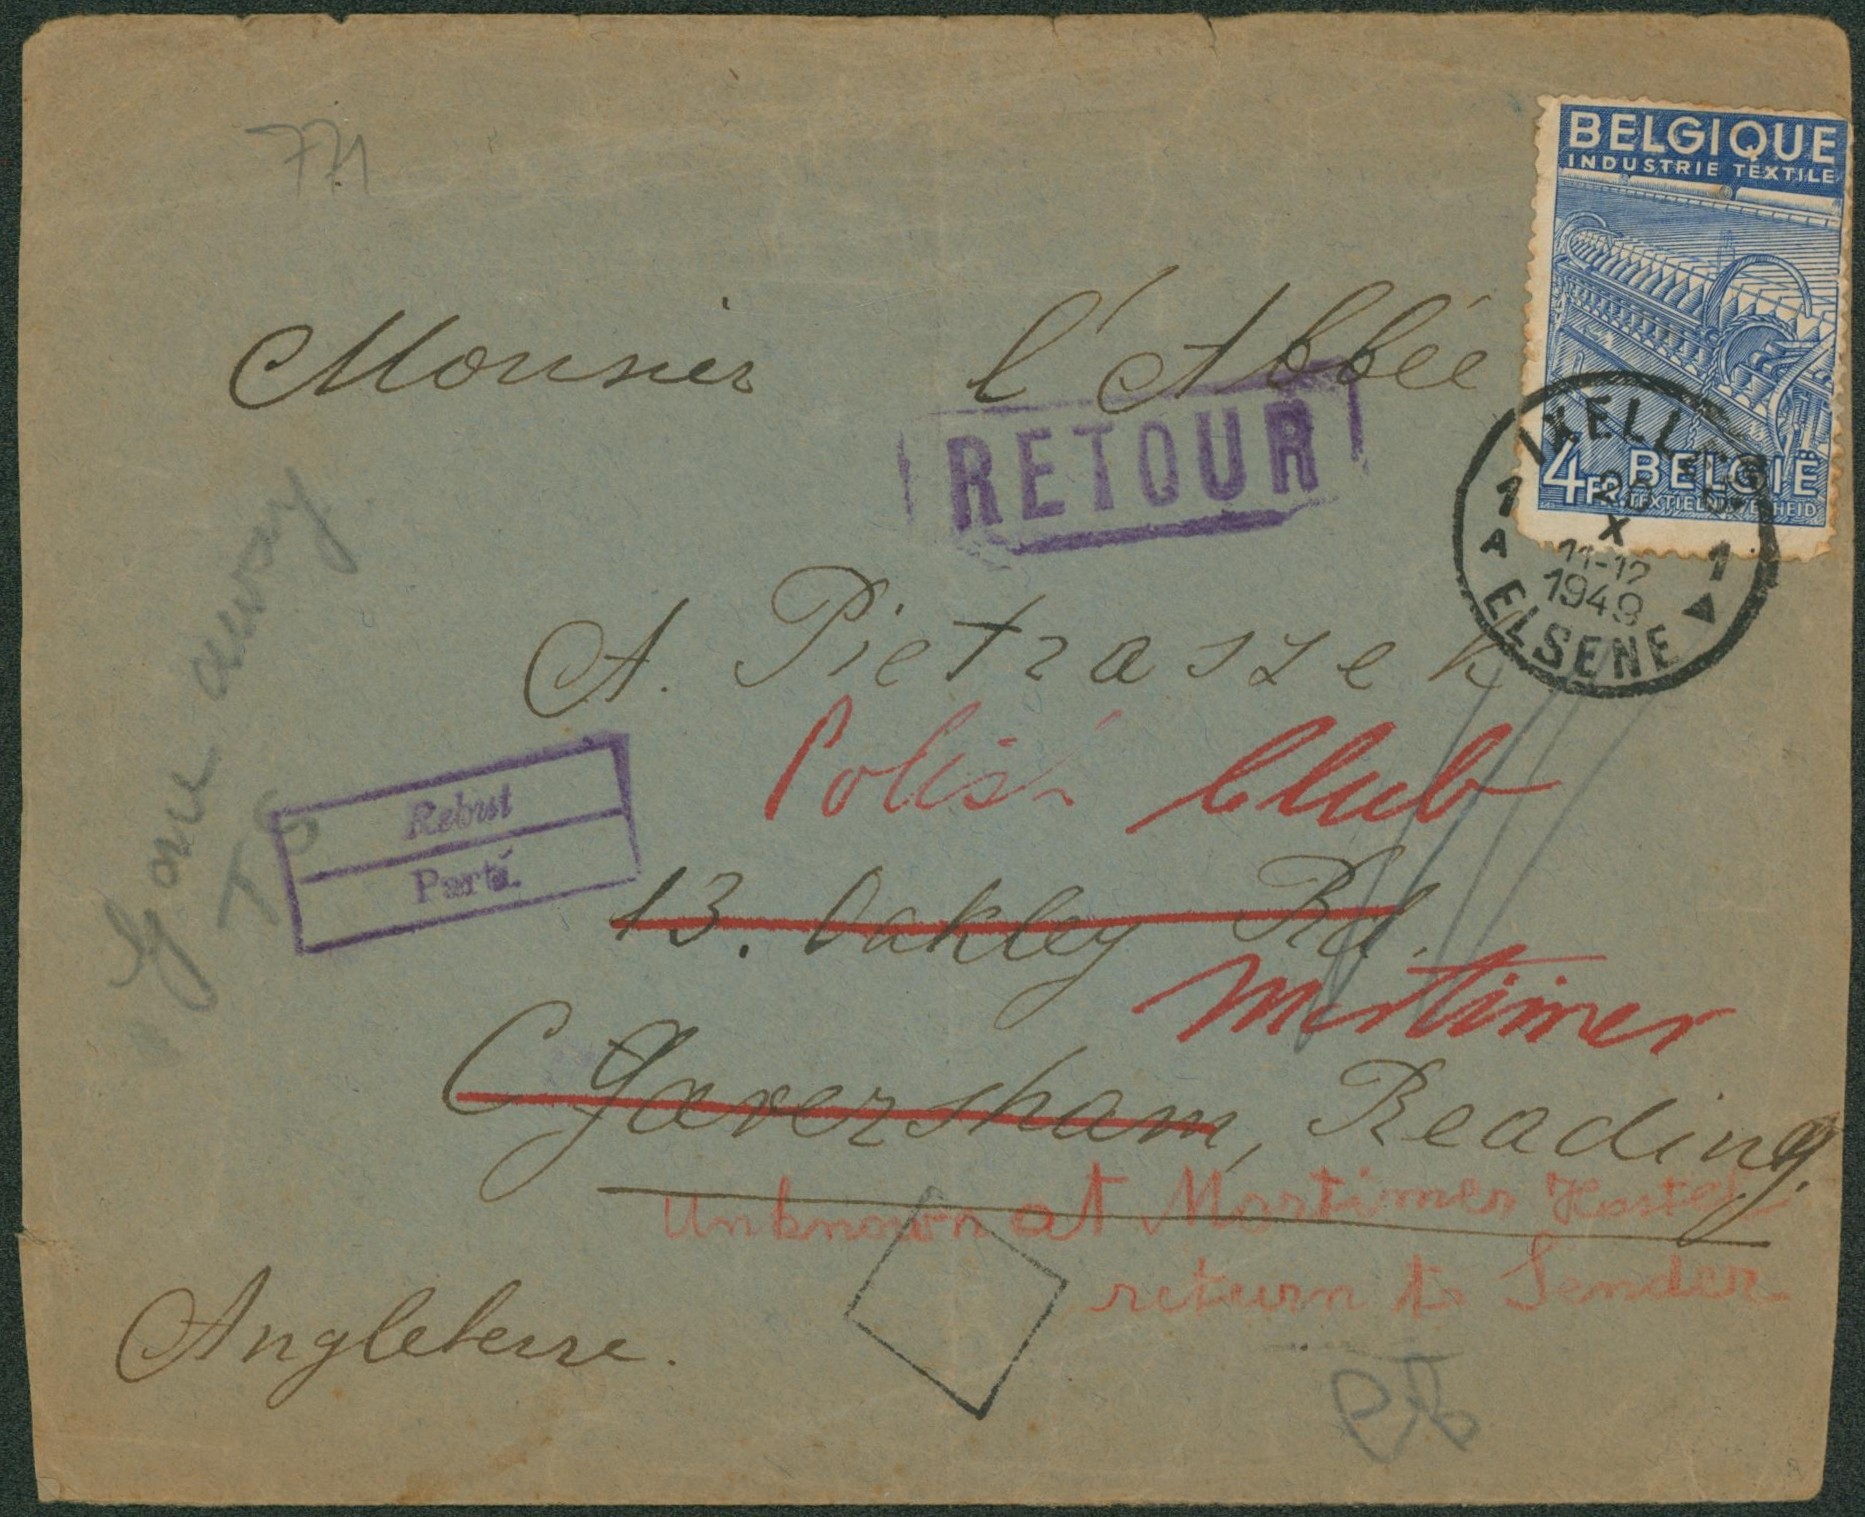 771
BELGIQUE
INDUSTRIE TEXTILE
4FR BELGIË
TEXTIELNIJVERHEID
IXELLES
1 1
A
X
11-12
1949
ELSENE
Monsier l'Abbée
RETOUR
A. Pietraszek
Polish Club
Gone away
T S
Rebut
Parti.
13. Oakley Rd.
Mortimer
Caversham, Reading.
Unknown at Mortimer Hostel
return to Sender
Angleterre.